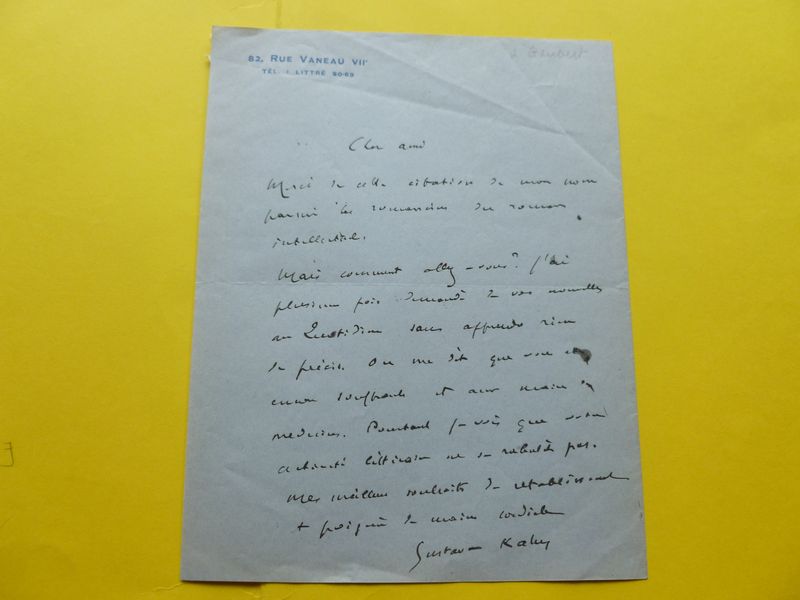 82, RUE VANEAU VIIᵉ
TÉL : LITTRÉ 90-69
à Gaubert
Cher ami
Merci de cette citation de mon nom
parmi les romanciers du roman
intellectuel.
Mais comment allez-vous? J'ai
plusieurs fois demandé de vos nouvelles
au Quotidien sans apprendre rien
de précis. On me dit que vous
encore souffrant et aux mains de
médecins. Pourtant je vois que votre
activité littéraire ne se ralentit pas.
Mes meilleurs souhaits de rétablissement
+ poignée de main cordiale
Gustave Kahn